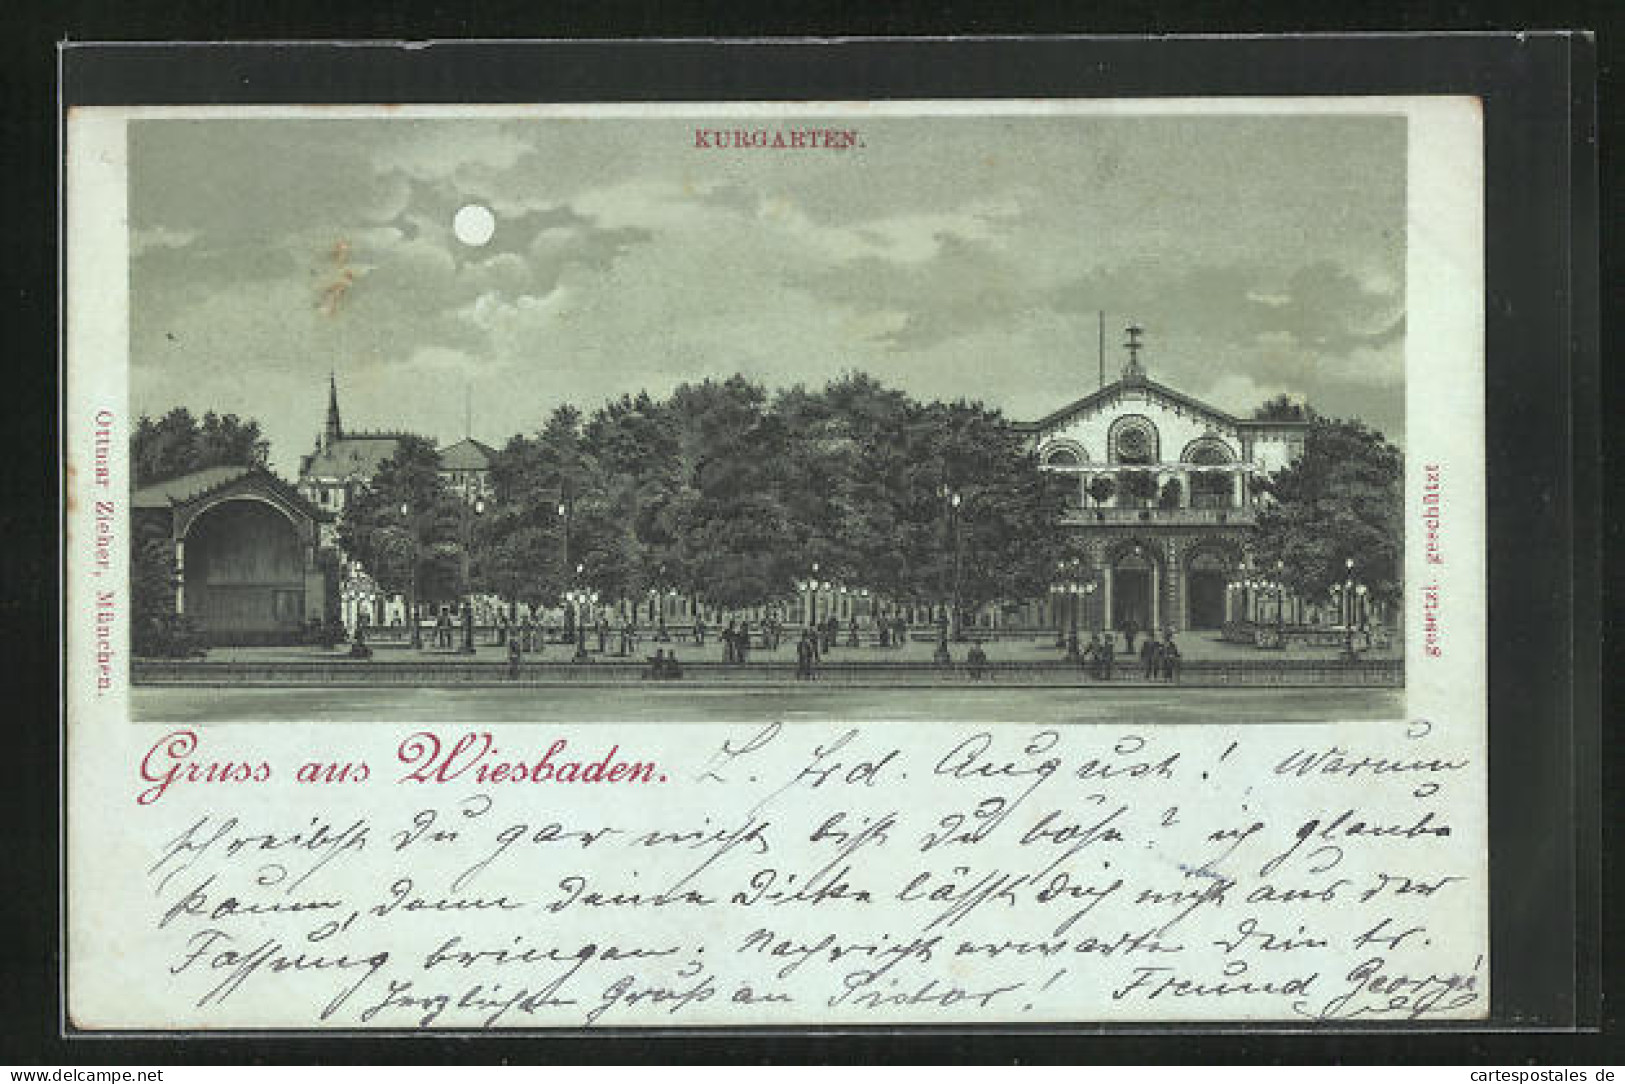 KURGARTEN.
Ottmar Zieher, München.
gesetzl. geschützt
Gruss aus Wiesbaden. L. Frd. August! Warum
schreibst Du gar nicht bist Du böse? ich glaube
kaum, denn deine Dicke lässt Dich nicht aus der
Fassung bringen. Nachricht erwartet Dein tr.
Herzlichen Gruß an Freund George
delcampe.net/motorindex
cartespostales de